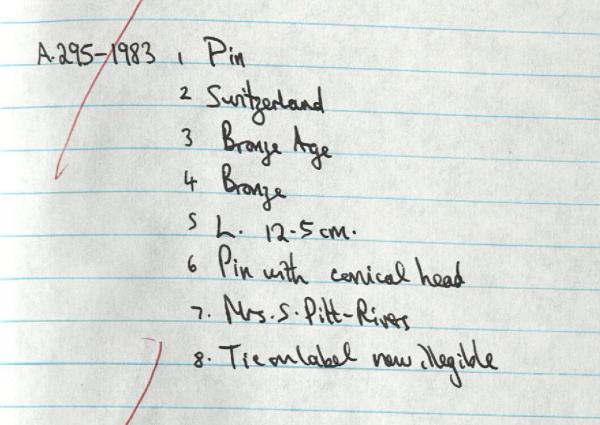 A.295-1983 1 Pin
2 Switzerland
3 Bronze Age
4 Bronze
5 L. 12.5 cm.
6 Pin with conical head
7. Mrs. S. Pitt-Rivers
8. Tie on label now illegible